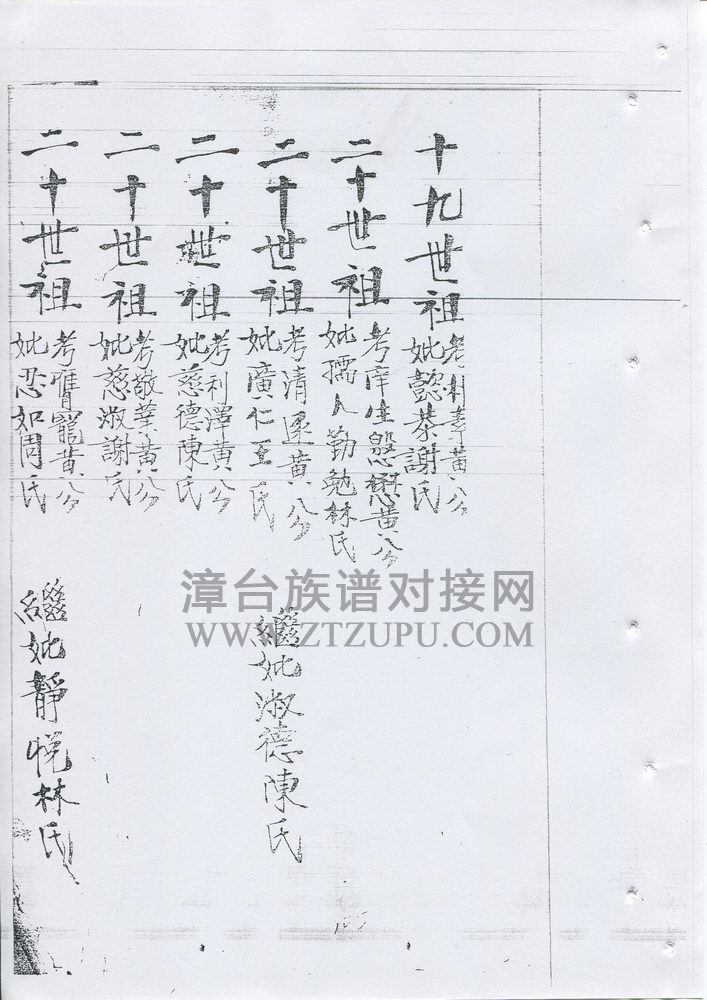 十九世祖
考 黃公
妣懿恭謝氏
二十世祖
考庠生 懋黃公
妣孺人勤勉林氏
二十世祖
考清 黃公
妣廣仁王氏
繼妣淑德陳氏
二十世祖
考利澤黃公
妣慈德陳氏
二十世祖
考敬業黃公
妣慈淑謝氏
二十世祖
考 寵黃公
妣忍如周氏
繼妣靜悅林氏
漳台族谱对接网
WWW.ZTZUPU.COM